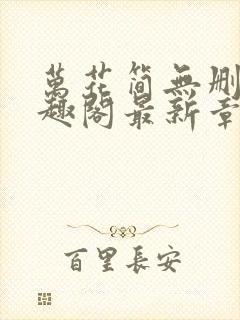 萬花簡無刪
趣閣最新章
百里長安